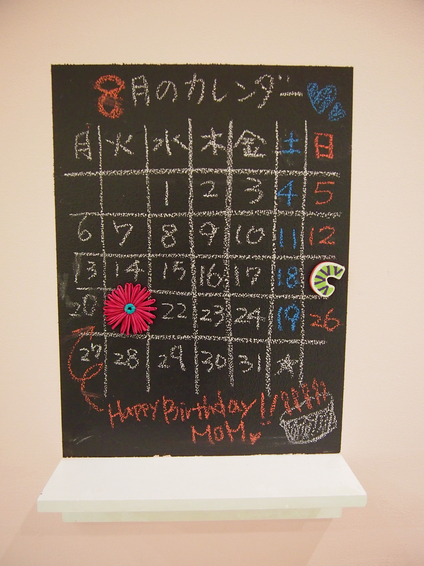 8月のカレンダー
月 火 水 木 金 土 日
1 2 3 4 5
6 7 8 9 10 11 12
13 14 15 16 17 18
20 22 23 24 19 26
27 28 29 30 31
Happy Birthday!!
MOM